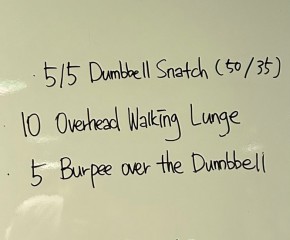 · 5/5 Dumbbell Snatch (50/35)
· 10 Overhead Walking Lunge
· 5 Burpee over the Dumbbell